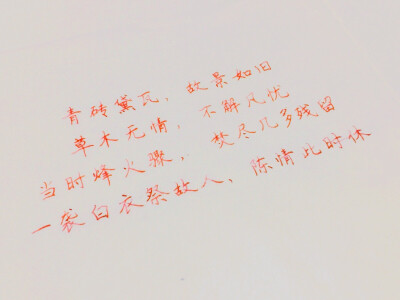 青砖黛瓦，故景如旧
草木无情，不解凡忧
当时烽火骤，焚尽几多残留
一袭白衣祭故人，陈情此时休